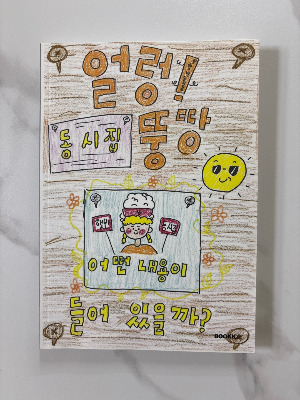 얼렁!
뚱땅
동시집
어떤 내용이
들어 있을까?
BOOKK